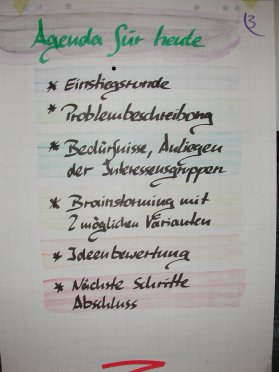 3
Agenda für heute
* Einstiegsrunde
* Problembeschreibung
* Bedürfnisse, Anliegen
der Interessensgruppen
* Brainstorming mit
2 möglichen Varianten
* Ideenbewertung
* Nächste Schritte
Abschluss